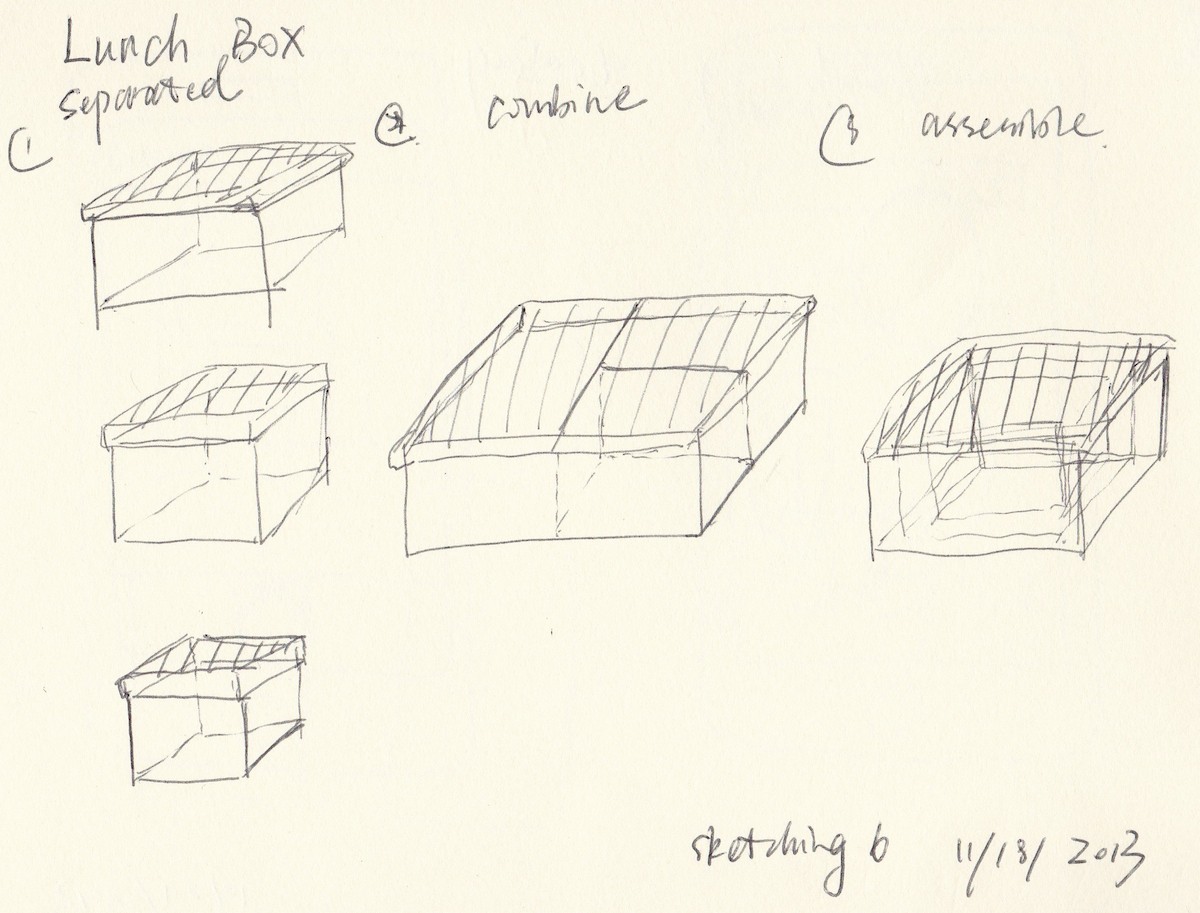 Lunch Box
separated
① ② combine ③ assemble.
sketching 6 11/18/2013